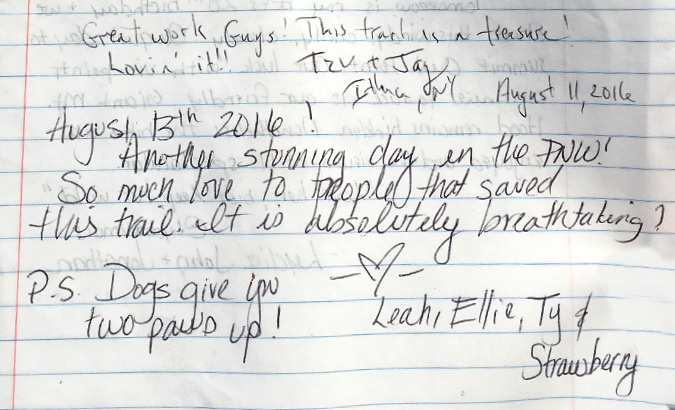 Great work, Guys! This trail is a treasure!
Lovin' it!!
Jay
Ithaca, NY August 11, 2016
August 13th 2016!
Another stunning day in the PNW!
So much love to people that saved
this trail. It is absolutely breathtaking!
P.S. Dogs give you
two paws up!
Leah, Ellie, Ty &
Strawberry